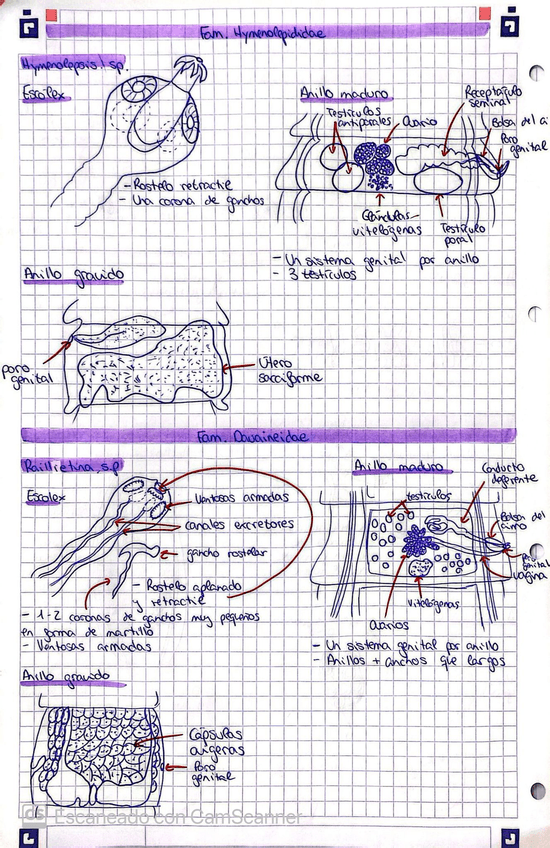 Fam. Hymenolepididae
Hymenolepsis, sp.
Escólex
- Rostelo retráctil
- Una corona de ganchos
Anillo maduro
Testículos
antiporales
Ovario
Receptáculo
seminal
Bolsa del ci
Poro
genital
Glándulas
vitelógenas
Testículo
poral
- Un sistema genital por anillo
- 3 testículos
Anillo grávido
poro
genital
Útero
sacciforme
Fam. Davaineidae
Raillietina, sp
Escolex
Ventosas armadas
canales excretores
gancho rostelar
- Rostelo aplanado
y retráctil
- 1-2 coronas de ganchos muy pequeños
en forma de martillo
- Ventosas armadas
Anillo maduro
testículos
Conducto
deferente
Bolsa del
cirro
Poro
genital
vagina
Vitelógenas
ovarios
- Un sistema genital por anillo
- Anillos + anchos que largos
Anillo grávido
Cápsulas
ovígeras
Poro
genital
CS Escaneado con CamScanner